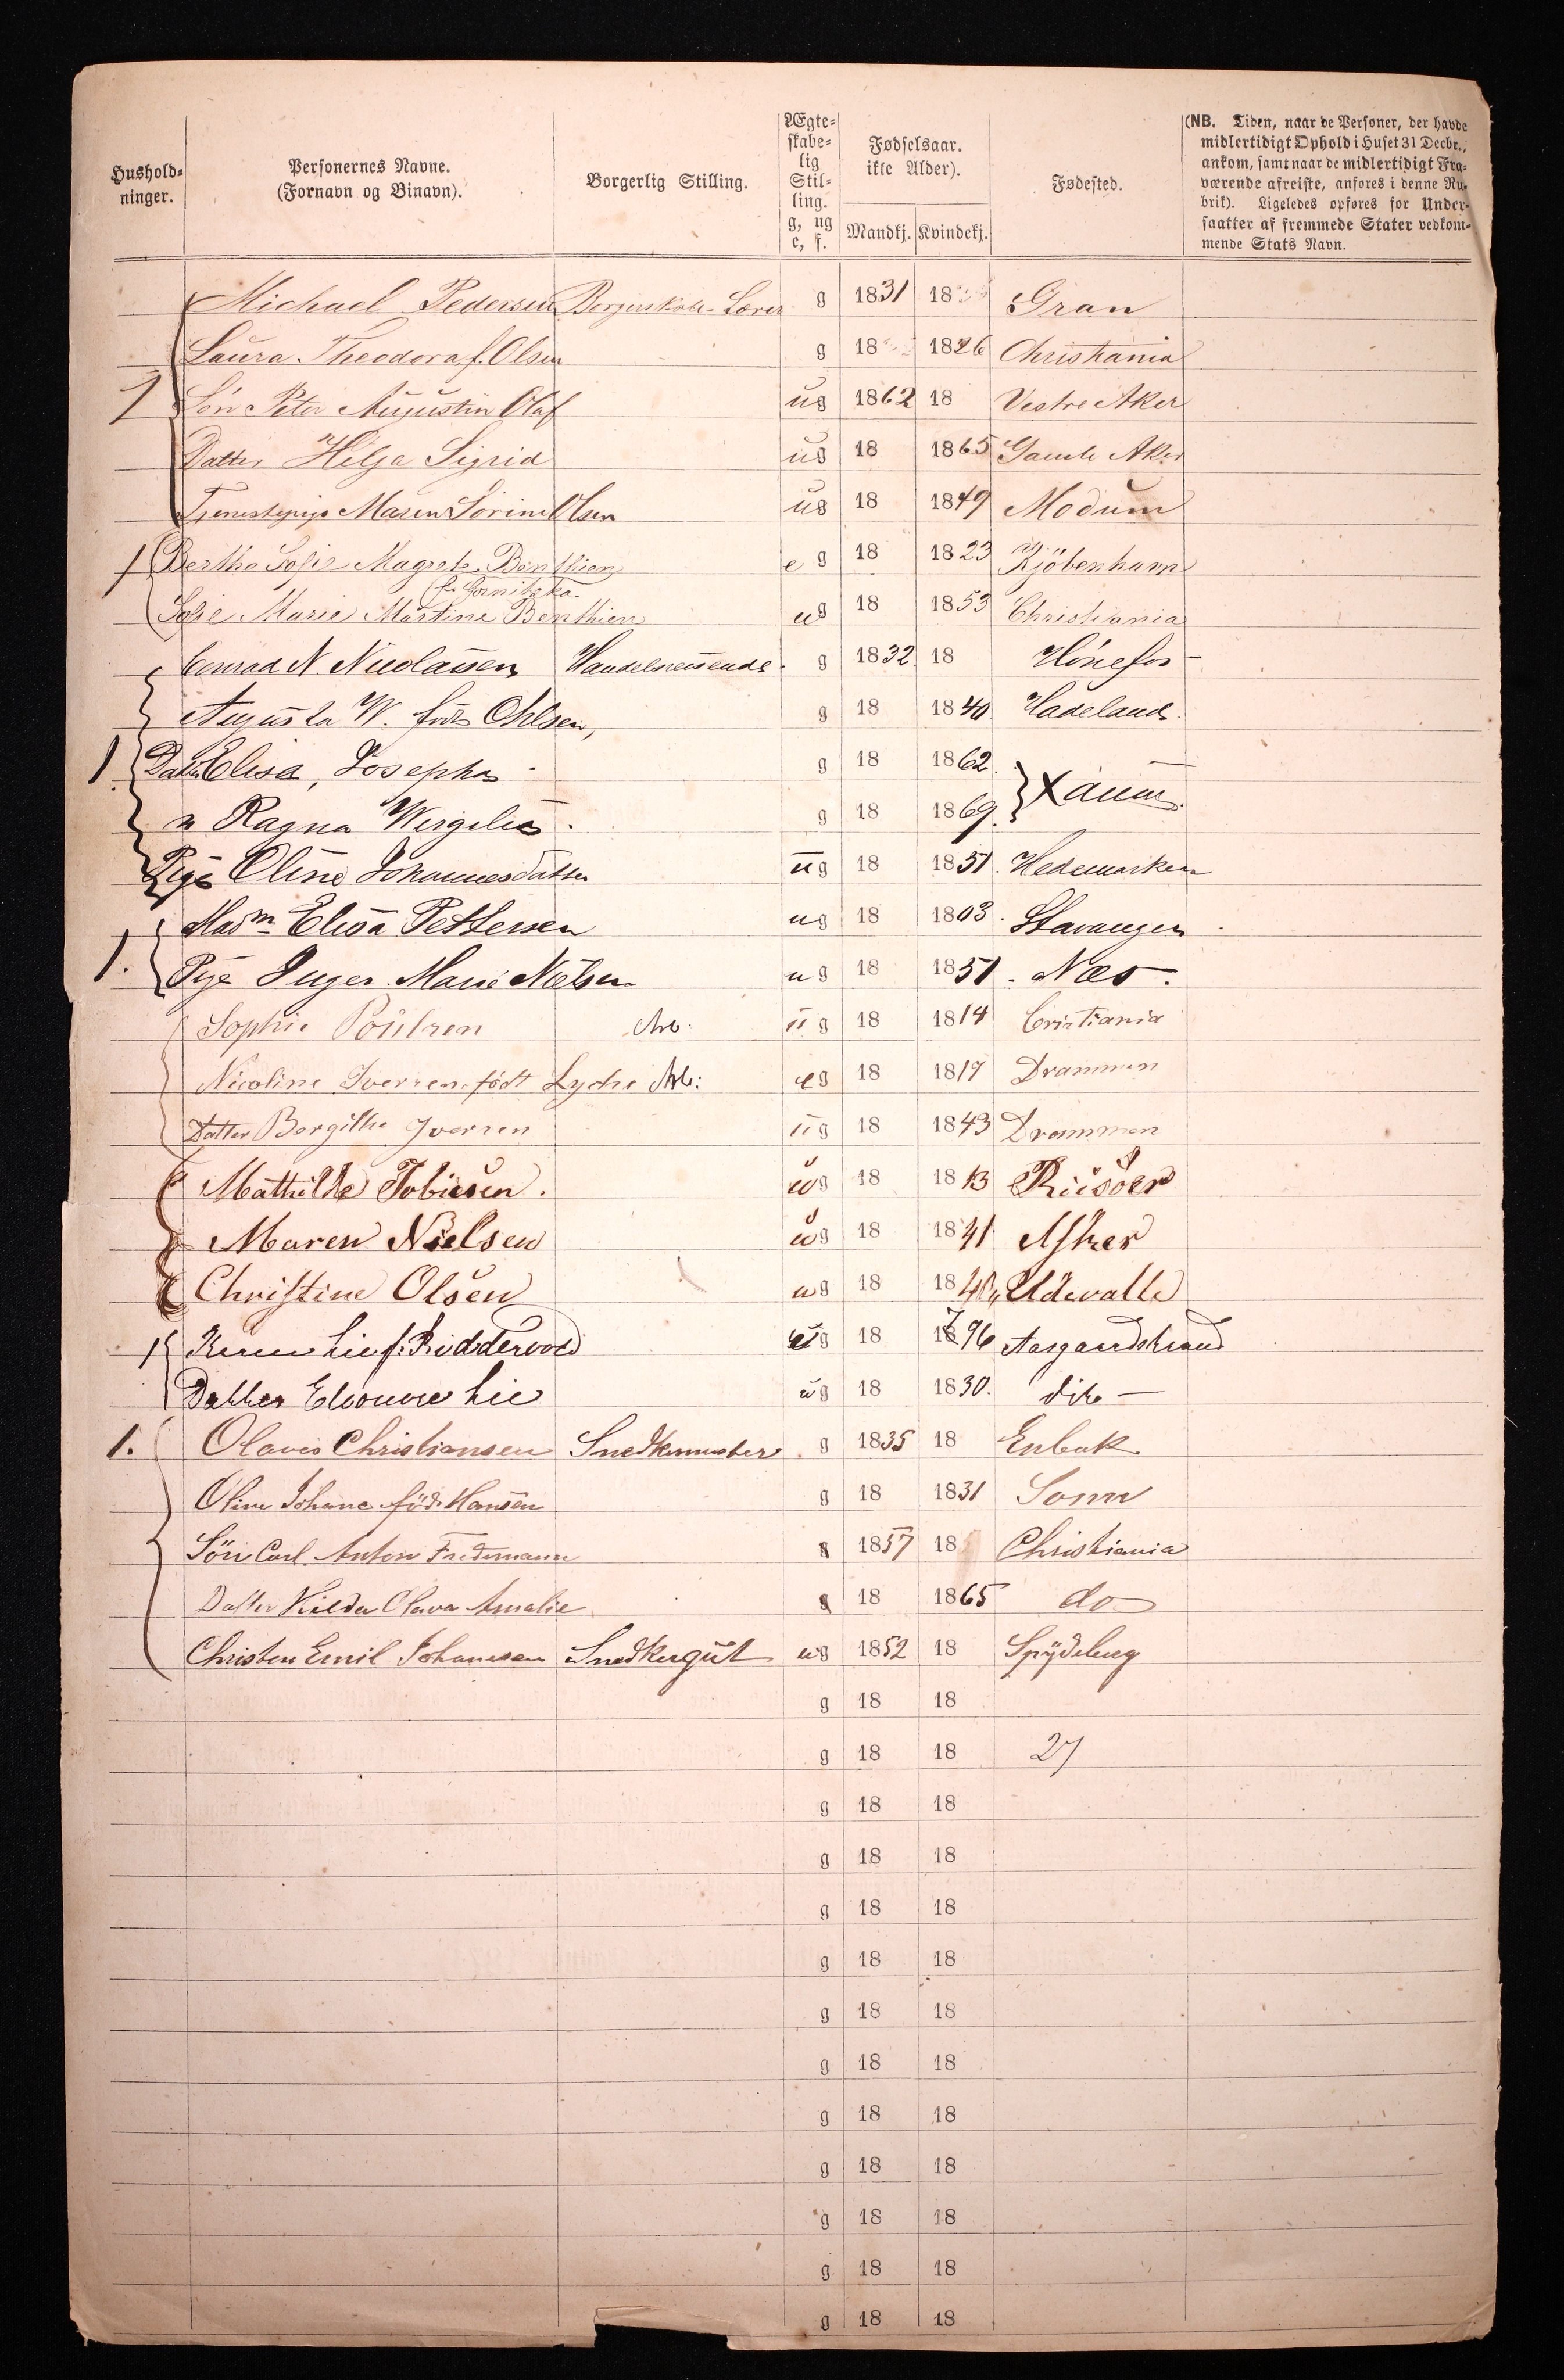 Hushold-
ninger.
Personernes Navne.
(Fornavn og Binavn).
Borgerlig Stilling.
Ægte-
skabe-
lig
Stil-
ling.
g, ug
e, s.
Fødselsaar.
ikke Alder).
Mandkj. Kvindekj.
Fødested.
(NB. Tiden, naar de Personer, der havde
midlertidigt Ophold i Huset 31 Decbr.,
ankom, samt naar de midlertidigt Fra-
værende afreiste, anføres i denne Ru-
brik). Ligeledes opføres for Under-
saatter af fremmede Stater vedkom-
mende Stats Navn.
Michael Pedersen Borgerskole-Lærer g 1831 18 Gran
Laura Theodora f. Olsen g 18 1826 Christiania
1 Sön Peter Augustin Olaf ug 1862 18 Vestre Aker
Datter Helga Sigrid ug 18 1865 Gamle Aker
Tjenestepige Maren Sörine Olsen ug 18 1849 Modum
1 Bertha Sofie Magrete Benthien e g 18 1823 Kjöbenhavn
f. Gornitzka
Sofie Marie Martine Benthien ug 18 1853 Christiania
Conrad N. Nicolaisen Handelsreisende g 1832 18 Hönefos
Augusta W. född Ohlsen, g 18 1840 Hadeland
1 Datter Elisa, Josepha g 18 1862
" Ragna Wirgilia g 18 1869 } Xania
Pige Oline Johannesdatter ug 18 1851 Hedemarken
Madm Elisa Pettersen ug 18 1803 Stavanger
1. Pige Inger Marie Nielsen ug 18 1851 Næs
Sophie Poulsen Arb. ug 18 1814 Cristiania
Nicoline Iversen födt Lyche Arb: eg 18 1817 Drammen
Datter Bergithe Iversen ug 18 1843 Drammen
Mathilde Tobiesen. ug 18 1813 Riisöer
Maren Nielsen ug 18 1841 Asker
Christine Olsen ug 18 18 Udevalle
1 Lie f. Riddervold eg 18 1796 Aasgaardstrand
Datter Eleonore Lie ug 18 1830. dito
1. Olaves Christiansen Snedkermester g 1835 18 Enbak
Oline Johane föd Hansen g 18 1831 Soon
Sön Carl Anton Fredemann g 1857 18 Christiania
Datter Hilda Olava Amalie g 18 1865 do
Christen Emil Johannesen Snedkergut ug 1852 18 Spydeberg
g 18 18
g 18 18 27
g 18 18
g 18 18
g 18 18
g 18 18
g 18 18
g 18 18
g 18 18
g 18 18
g 18 18
g 18 18
g 18 18